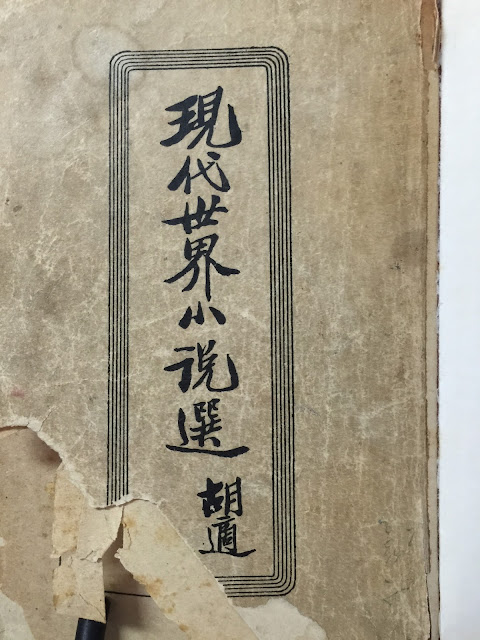 現代世界小説選
胡適